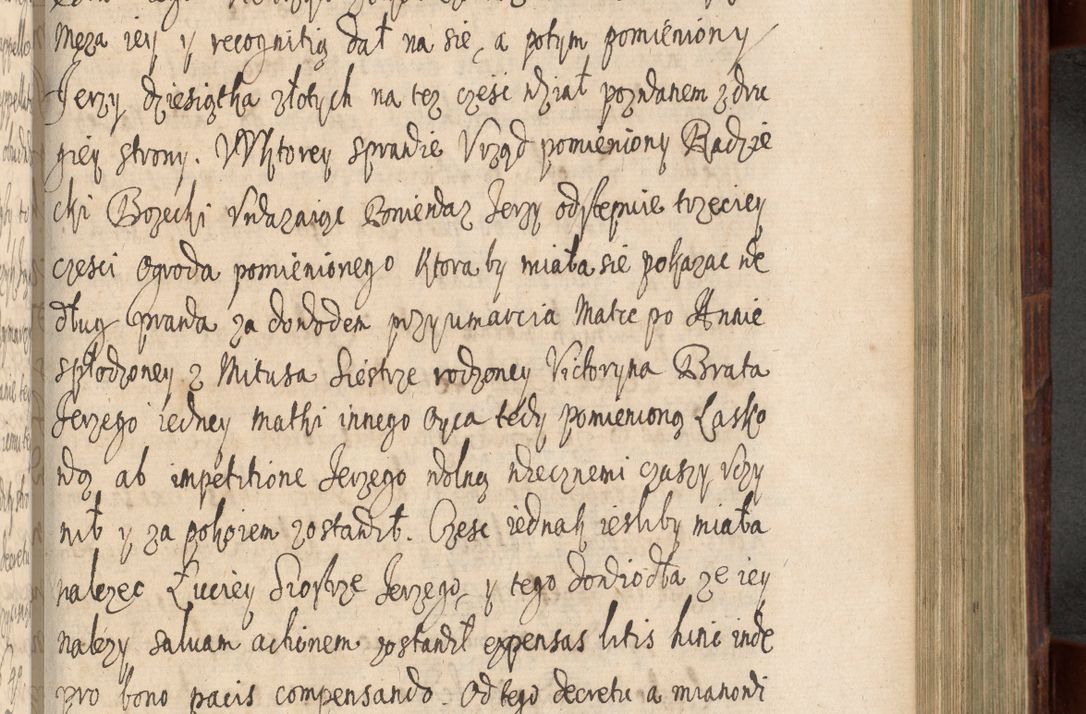 Męza iey y recognitią dał na się, a potym pomieniony
Jerzy dziesiątka złotych na tez częsc wział pozwanem z dru
giey strony. W Ktorey sprawie Vrząd pomieniony Radzie
cki Bozecki Vwazaiąc Ponieważ Jerzy odstępuie trzeciey
częsci Ogroda pomienionego Ktora by miała się pokazac we
dług prawa za dowodem przyumarcia Matce po Annie
spłodzoney z Mitusa Siestrze rodzoney Victoryna Brata
Jerzego iedney Matki innego Oyca tedy pomienioną Łasko
wą ab impetitione Jerzego wolną wiecznemi czasy vczy
nił y za pokoiem zostawił. Częsc iednak iesliby miała
nalezec Łuciey Siostrze Jerzego, y tego dowiodła ze iey
nalezy saluam actionem zostawił expensas litis hinc inde
pro bono pacis compensando. Od tego decretu a mianowi